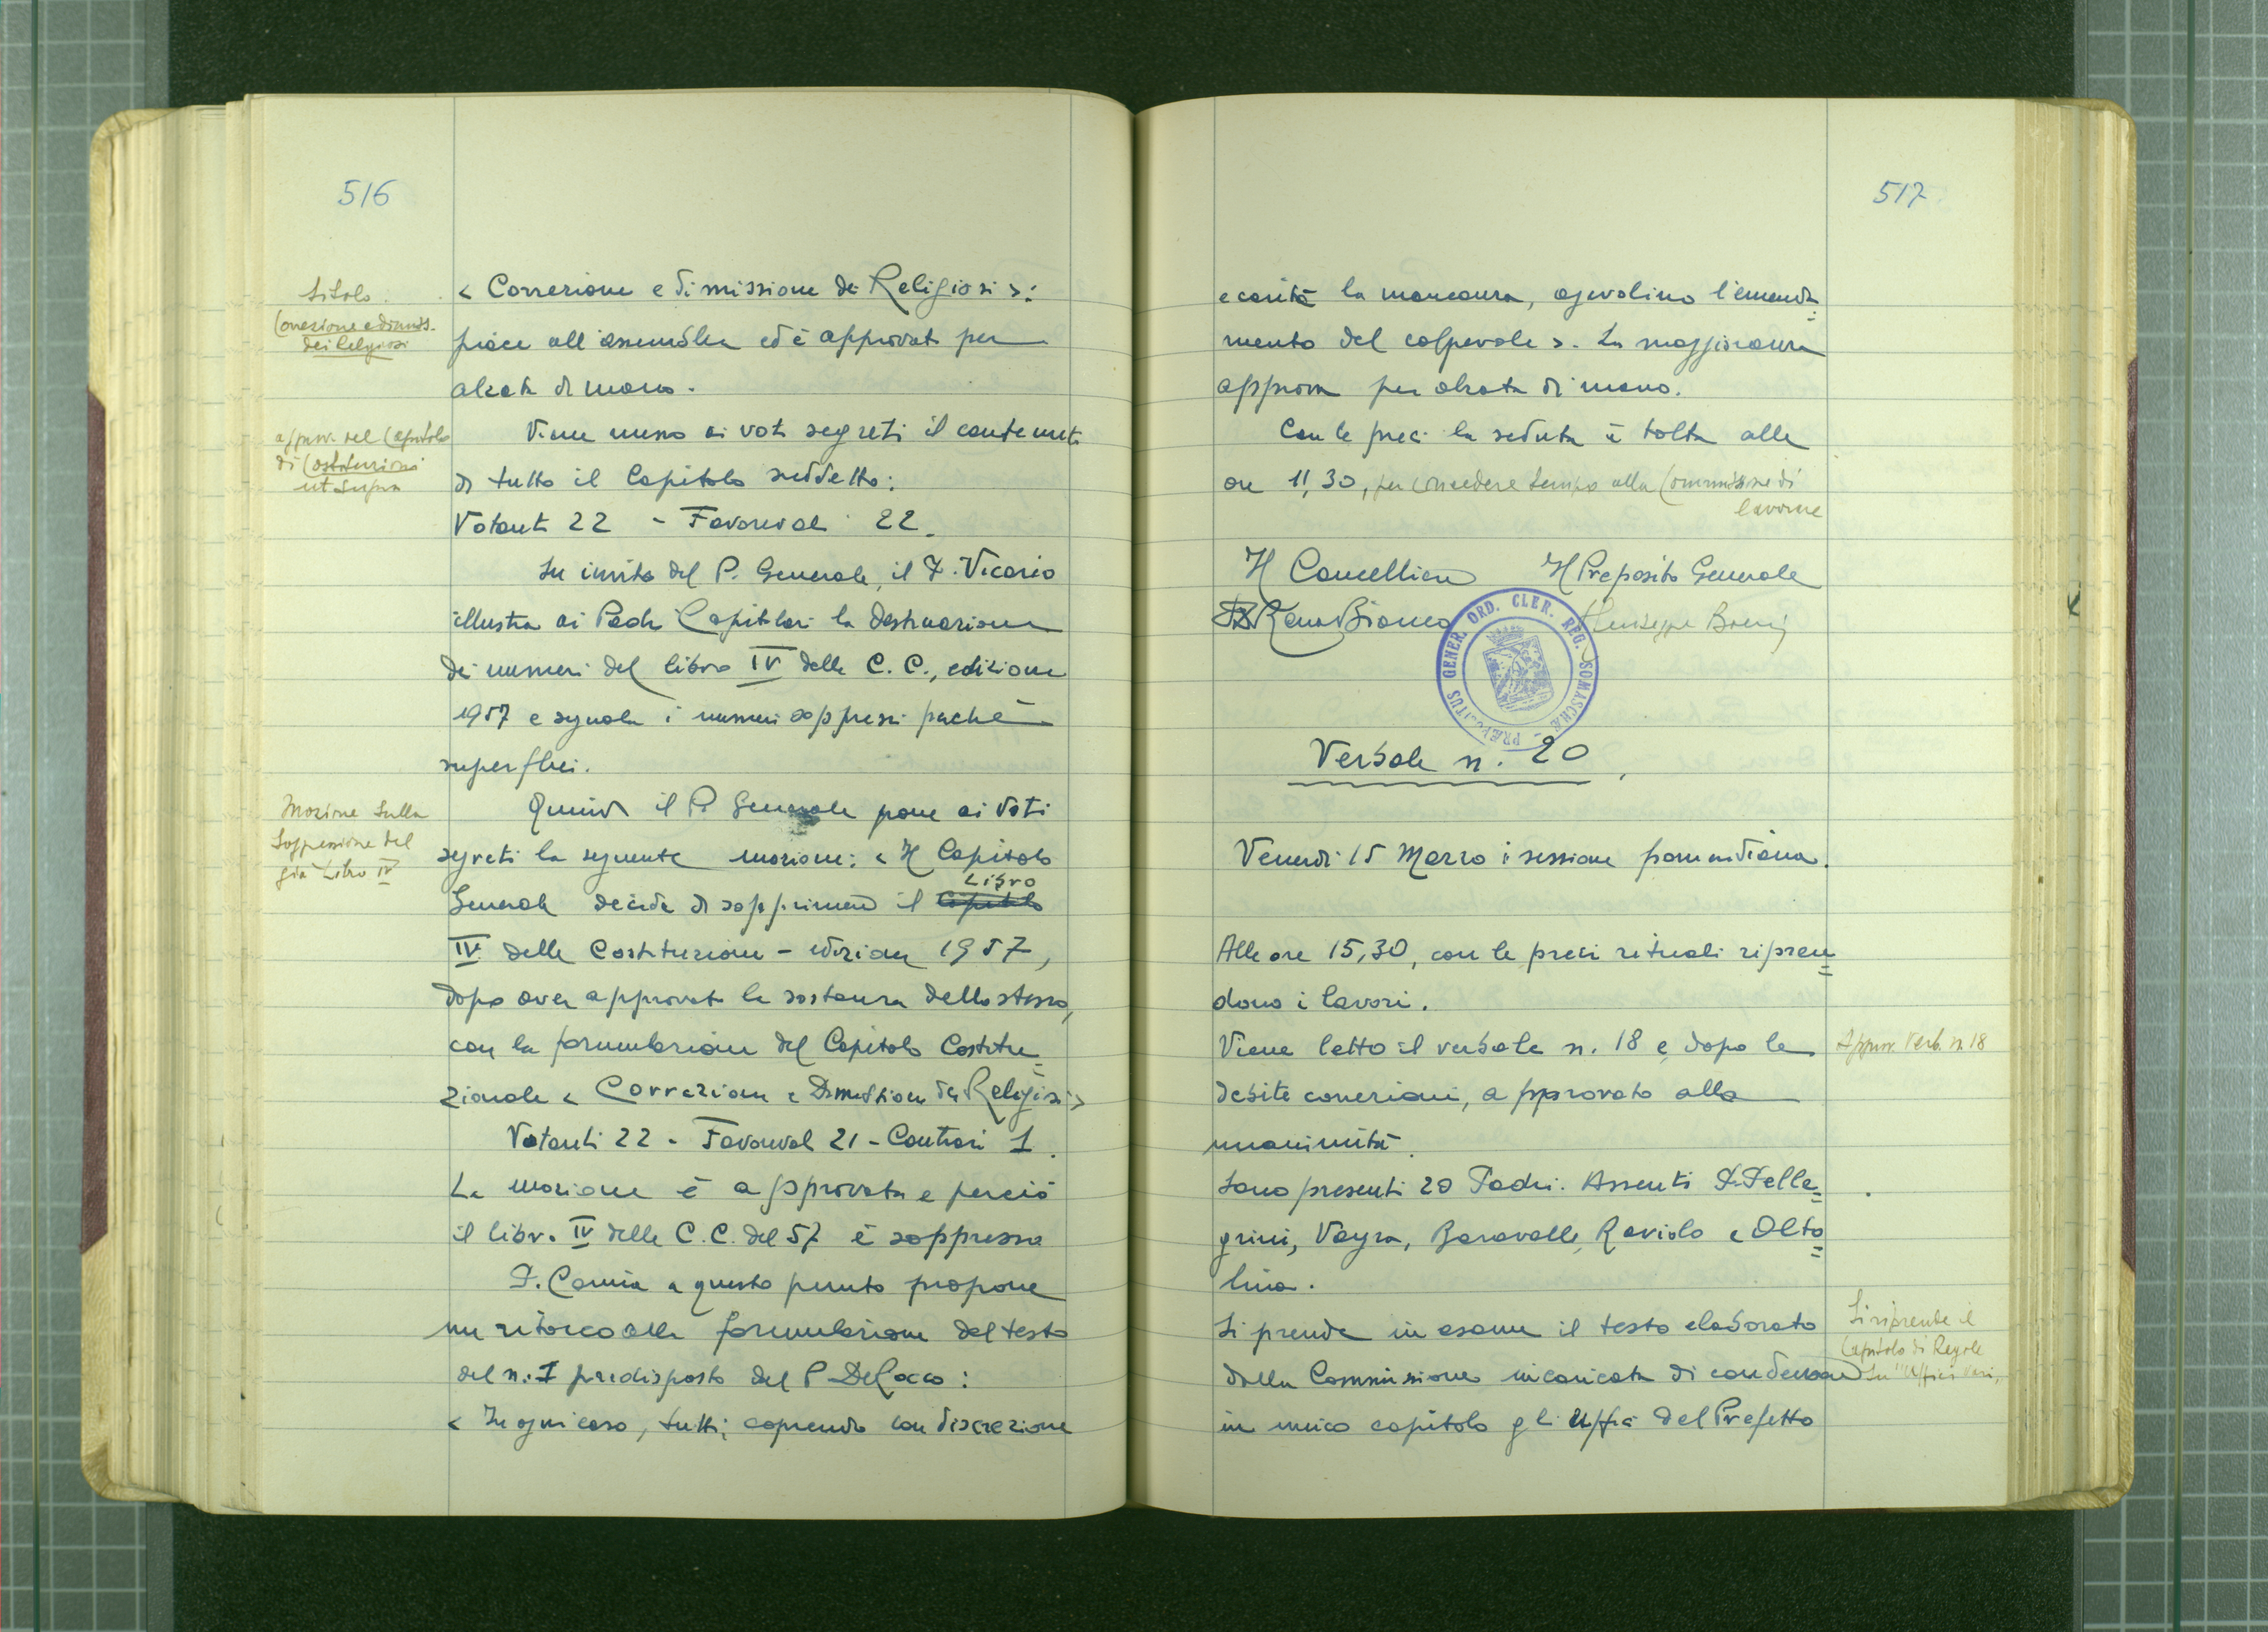 516
titolo
Correzione e dimiss.
dei Religiosi
« Correzione e dimissione dei Religiosi »:
piace all'assemblea ed è approvato per
alzata di mano.
approv. del Capitolo
di Costituzioni
ut supra
Viene messo ai voti segreti il contenuto
di tutto il Capitolo suddetto:
Votanti 22 - Favorevoli 22.
Su invito del P. Generale, il P. Vicario
illustra ai Padri Capitolari la destinazione
dei numeri del libro IV delle C. C., edizione
1957 e segnala i numeri soppressi perché
superflui.
Mozione sulla
soppressione del
già Libro IV
Quindi il P. Generale pone ai voti
segreti la seguente mozione: « Il Capitolo
Libro
Generale decide di sopprimere il Capitolo
IV delle Costituzioni - edizione 1957,
dopo aver approvato la sostanza dello stesso,
con la formulazione del Capitolo Costitu=
zionale « Correzione e Dimissione dei Religiosi »
Votanti 22 - Favorevoli 21 - Contrari 1.
La mozione è approvata e perciò
il libro IV delle C. C. del 57 è soppresso
P. Camia a questo punto propone
un ritocco alla formulazione del testo
del n. I predisposto dal P. De Rocco:
« In ogni caso, tutti, coprendo con discrezione
517
e carità la mancanza, agevolino l'emenda=
mento del colpevole ». La maggioranza
approva per alzata di mano.
Con le preci la seduta è tolta alle
ore 11,30, per concedere tempo alla Commissione di
lavorare
Il Cancelliere Il Preposito Generale
Renato Bianco Giuseppe Boeris
PRÆPOSITUS GENER. ORD. CLER. REG. SOMASCHÆ
Verbale n. 20
Venerdì 15 Marzo: sessione pomeridiana.
Alle ore 15,30, con le preci rituali ripren=
dono i lavori.
Viene letto il verbale n. 18 e, dopo le
Approv. Verb. n. 18
debite correzioni, approvato alla
unanimità.
Sono presenti 20 Padri. Assenti P. Pelle=
grini, Vayra, Baravalle, Raviolo e Olto=
lina.
Si prende in esame il testo elaborato
Si riprende il
Capitolo di Regole
su "Uffici vari"
dalla Commissione incaricata di condensare
in unico capitolo gli Uffici del Prefetto